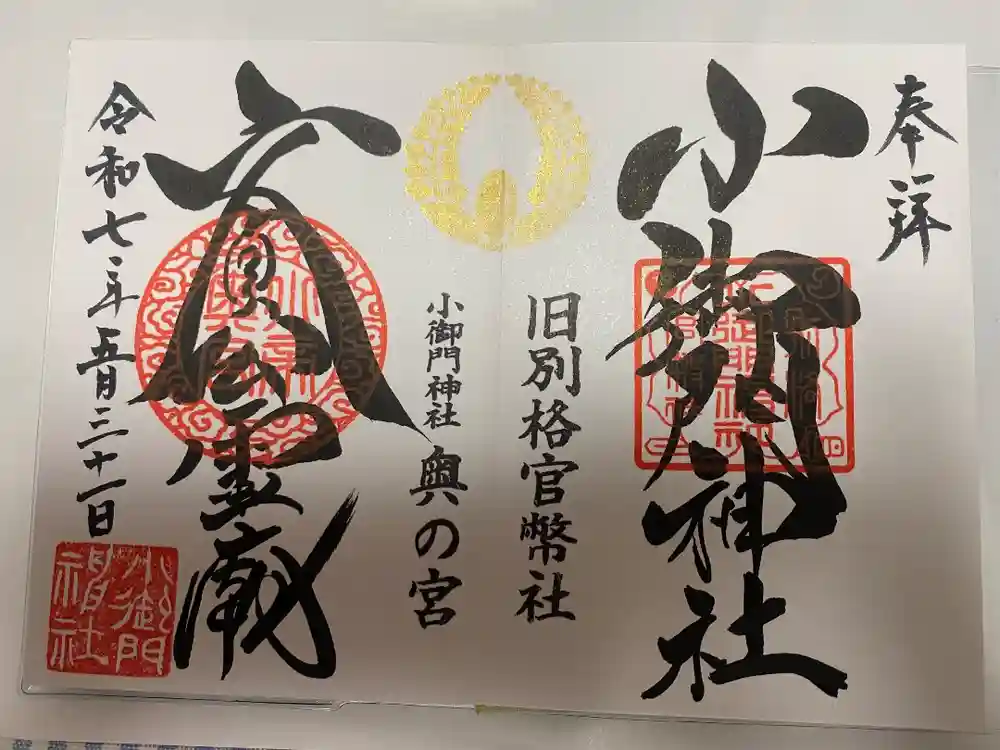 奉拝
小御門神社
旧別格官幣社
小御門神社 奥の宮
文貞公霊蔵
令和七年五月三十一日
小御門神社